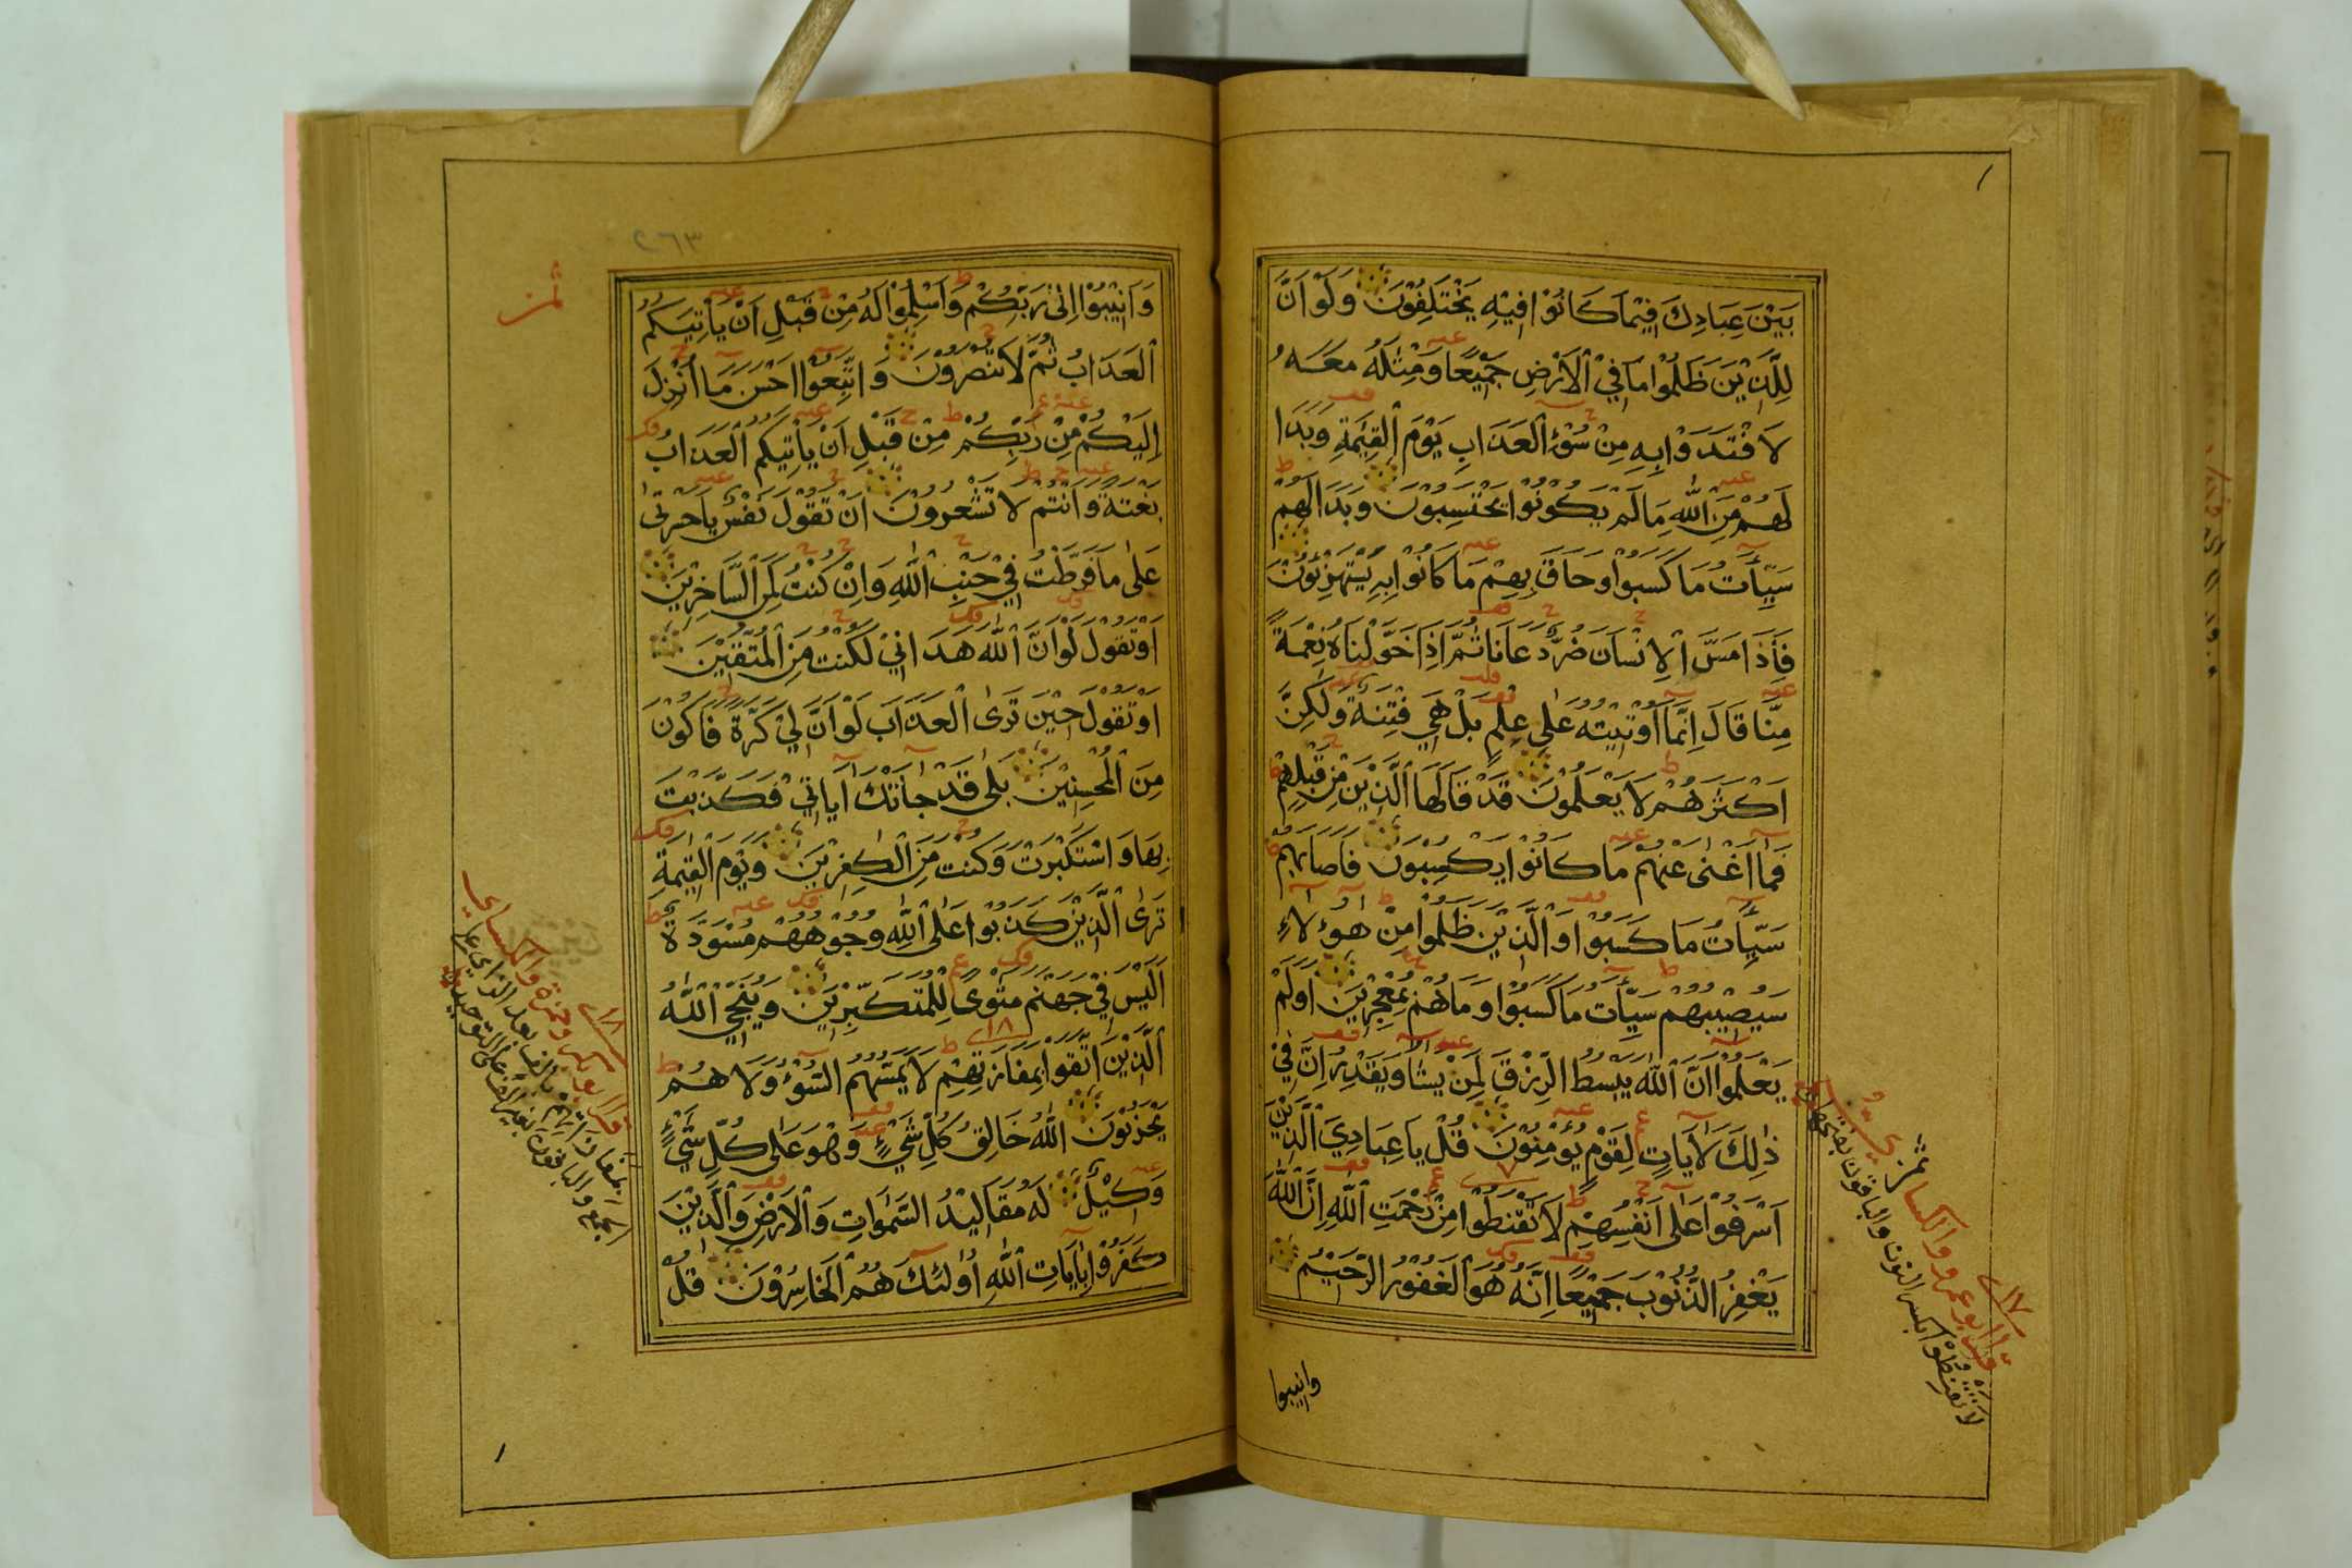 بَيْنَ عِبَادِكَ فِيْمَا كَانُوْا فِيْهِ يَخْتَلِفُوْنَ وَلَوْ اَنَّ
لِلَّذِيْنَ ظَلَمُوْا مَا فِي الْاَرْضِ جَمِيْعًا وَمِثْلَهُ مَعَهُ
لَافْتَدَوْا بِهِ مِنْ سُوْءِ الْعَذَابِ يَوْمَ الْقِيٰمَةِ وَبَدَا
لَهُمْ مِنَ اللّٰهِ مَا لَمْ يَكُوْنُوْا يَحْتَسِبُوْنَ وَبَدَا لَهُمْ
سَيِّاٰتُ مَا كَسَبُوْا وَحَاقَ بِهِمْ مَا كَانُوْا بِهِ يَسْتَهْزِؤُنَ
فَاِذَا مَسَّ الْاِنْسَانَ ضُرٌّ دَعَانَا ثُمَّ اِذَا خَوَّلْنَاهُ نِعْمَةً
مِنَّا قَالَ اِنَّمَا اُوْتِيْتُهُ عَلٰى عِلْمٍ بَلْ هِيَ فِتْنَةٌ وَلٰكِنَّ
اَكْثَرَهُمْ لَا يَعْلَمُوْنَ قَدْ قَالَهَا الَّذِيْنَ مِنْ قَبْلِهِمْ
فَمَا اَغْنٰى عَنْهُمْ مَا كَانُوْا يَكْسِبُوْنَ فَاَصَابَهُمْ
سَيِّاٰتُ مَا كَسَبُوْا وَالَّذِيْنَ ظَلَمُوْا مِنْ هٰؤُلَاءِ
سَيُصِيْبُهُمْ سَيِّاٰتُ مَا كَسَبُوْا وَمَا هُمْ بِمُعْجِزِيْنَ اَوَلَمْ
يَعْلَمُوْا اَنَّ اللّٰهَ يَبْسُطُ الرِّزْقَ لِمَنْ يَشَاءُ وَيَقْدِرُ اِنَّ فِيْ
ذٰلِكَ لَاٰيَاتٍ لِقَوْمٍ يُؤْمِنُوْنَ قُلْ يَا عِبَادِيَ الَّذِيْنَ
اَسْرَفُوْا عَلٰى اَنْفُسِهِمْ لَا تَقْنَطُوْا مِنْ رَحْمَتِ اللّٰهِ اِنَّ اللّٰهَ
يَغْفِرُ الذُّنُوْبَ جَمِيْعًا اِنَّهُ هُوَ الْغَفُوْرُ الرَّحِيْمُ
وانيبوا
١٧
قرا ابو عمرو والكسائي
لَا تَقْنِطُوْا بكسر النون والباقون بفتحها
٢٦٣
ثمن
وَاَنِيْبُوْا اِلٰى رَبِّكُمْ وَاَسْلِمُوْا لَهُ مِنْ قَبْلِ اَنْ يَاْتِيَكُمُ
الْعَذَابُ ثُمَّ لَا تُنْصَرُوْنَ وَاتَّبِعُوْا اَحْسَنَ مَا اُنْزِلَ
اِلَيْكُمْ مِنْ رَبِّكُمْ مِنْ قَبْلِ اَنْ يَاْتِيَكُمُ الْعَذَابُ
بَغْتَةً وَاَنْتُمْ لَا تَشْعُرُوْنَ اَنْ تَقُوْلَ نَفْسٌ يَا حَسْرَتٰى
عَلٰى مَا فَرَّطْتُ فِيْ جَنْبِ اللّٰهِ وَاِنْ كُنْتُ لَمِنَ السَّاخِرِيْنَ
اَوْ تَقُوْلَ لَوْ اَنَّ اللّٰهَ هَدَانِيْ لَكُنْتُ مِنَ الْمُتَّقِيْنَ
اَوْ تَقُوْلَ حِيْنَ تَرَى الْعَذَابَ لَوْ اَنَّ لِيْ كَرَّةً فَاَكُوْنَ
مِنَ الْمُحْسِنِيْنَ بَلٰى قَدْ جَاءَتْكَ اٰيَاتِيْ فَكَذَّبْتَ
بِهَا وَاسْتَكْبَرْتَ وَكُنْتَ مِنَ الْكٰفِرِيْنَ وَيَوْمَ الْقِيٰمَةِ
تَرَى الَّذِيْنَ كَذَبُوْا عَلَى اللّٰهِ وُجُوْهُهُمْ مُسْوَدَّةٌ
اَلَيْسَ فِيْ جَهَنَّمَ مَثْوًى لِلْمُتَكَبِّرِيْنَ وَيُنَجِّي اللّٰهُ
الَّذِيْنَ اتَّقَوْا بِمَفَازَتِهِمْ لَا يَمَسُّهُمُ السُّوْءُ وَلَا هُمْ
يَحْزَنُوْنَ اَللّٰهُ خَالِقُ كُلِّ شَيْءٍ وَهُوَ عَلٰى كُلِّ شَيْءٍ
وَكِيْلٌ لَهُ مَقَالِيْدُ السَّمٰوَاتِ وَالْاَرْضِ وَالَّذِيْنَ
كَفَرُوْا بِاٰيَاتِ اللّٰهِ اُولٰئِكَ هُمُ الْخَاسِرُوْنَ قُلْ
١٨
وحمزة والكسائي
بمفازاتهم بالف بعد الزاي على
الجمع والباقون بغير الف على التوحيد